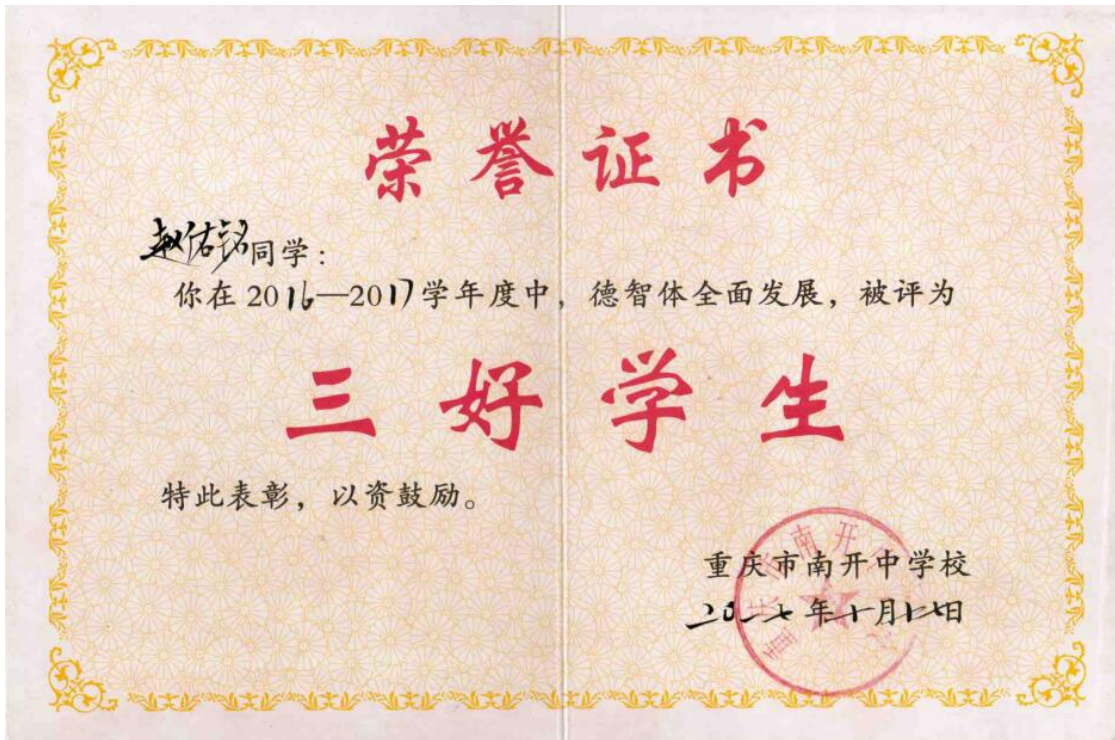 荣誉证书
赵佑铭同学：
你在2016—2017学年度中，德智体全面发展，被评为
三好学生
特此表彰，以资鼓励。
重庆市南开中学校
二〇一七年十月十七日